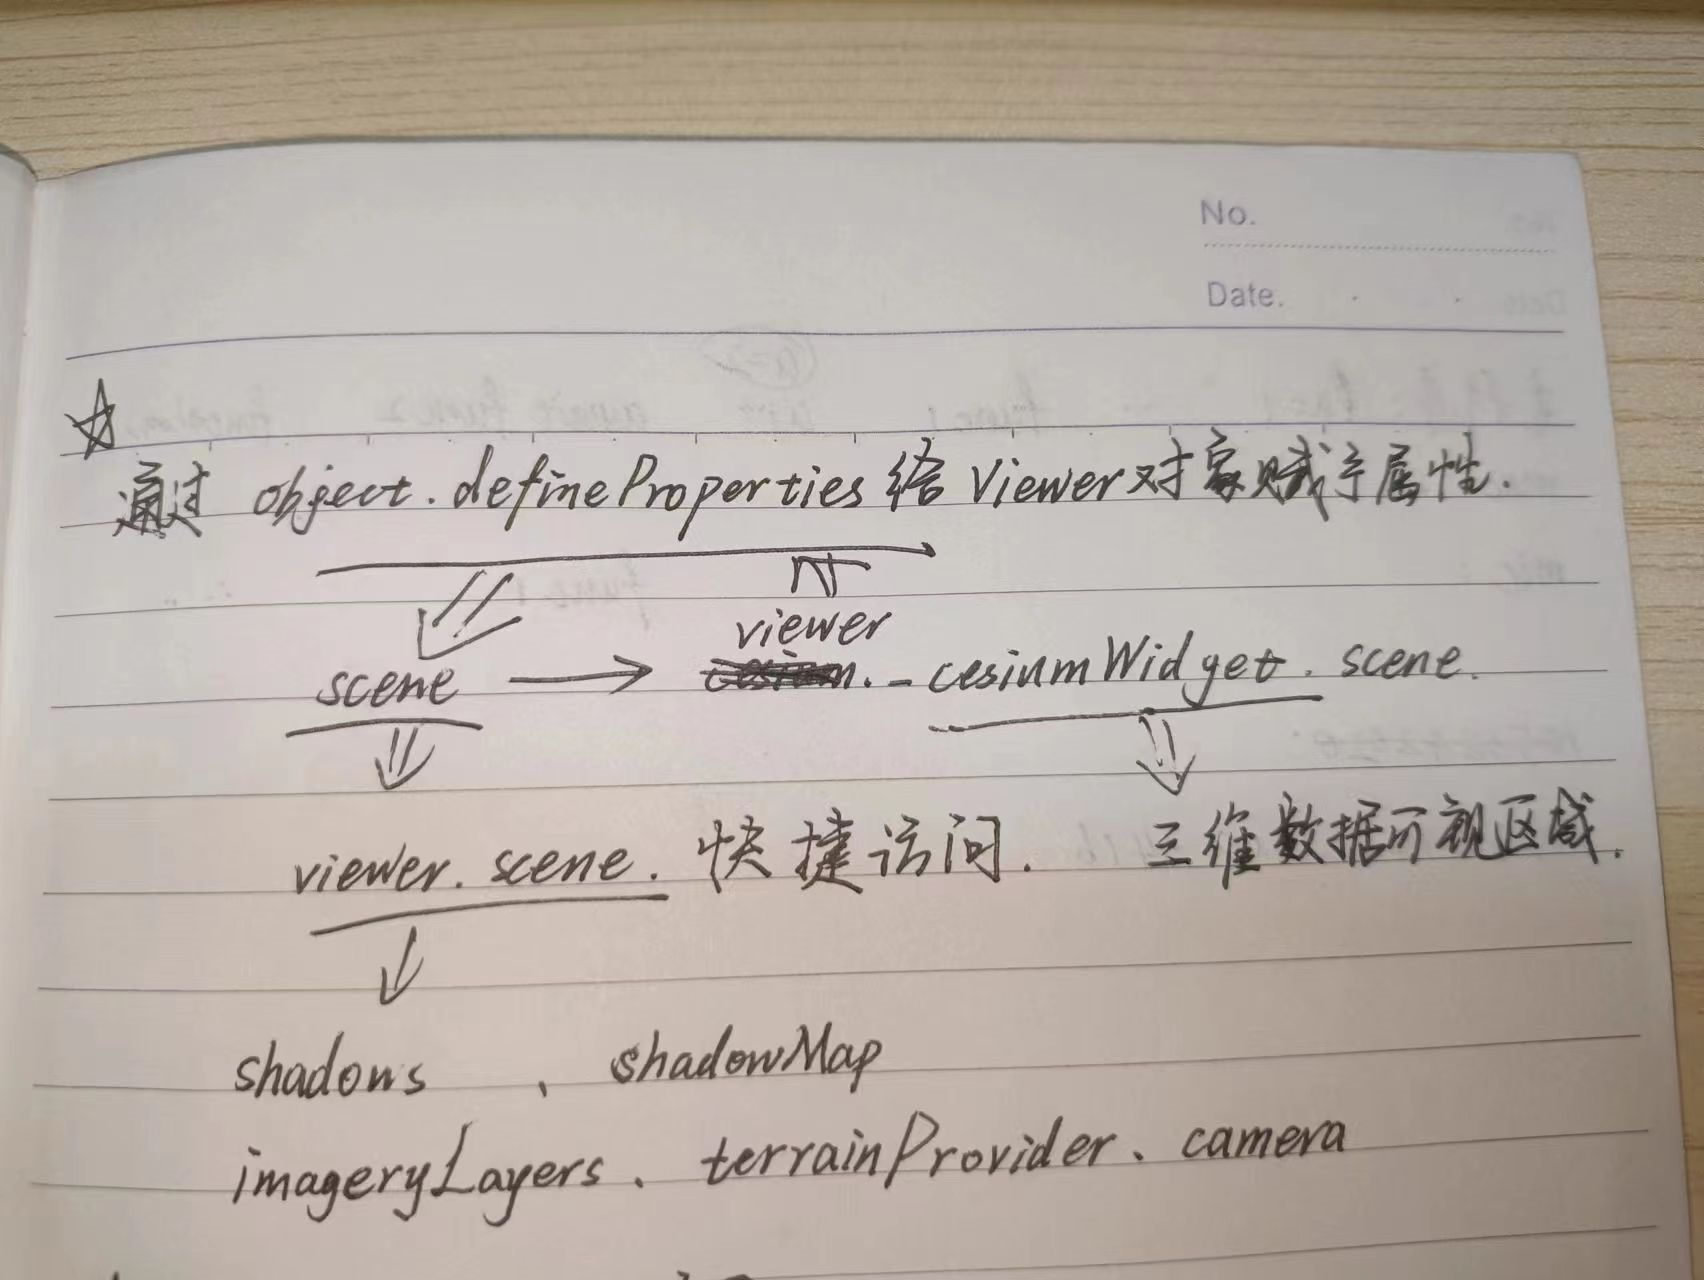 No.
Date.
通过 object.defineProperties 给 Viewer 对象赋予属性.
viewer
scene → ._cesiumWidget.scene.
viewer.scene. 快捷访问. 三维数据可视区域.
shadows 、shadowMap
imageryLayers、terrainProvider、camera